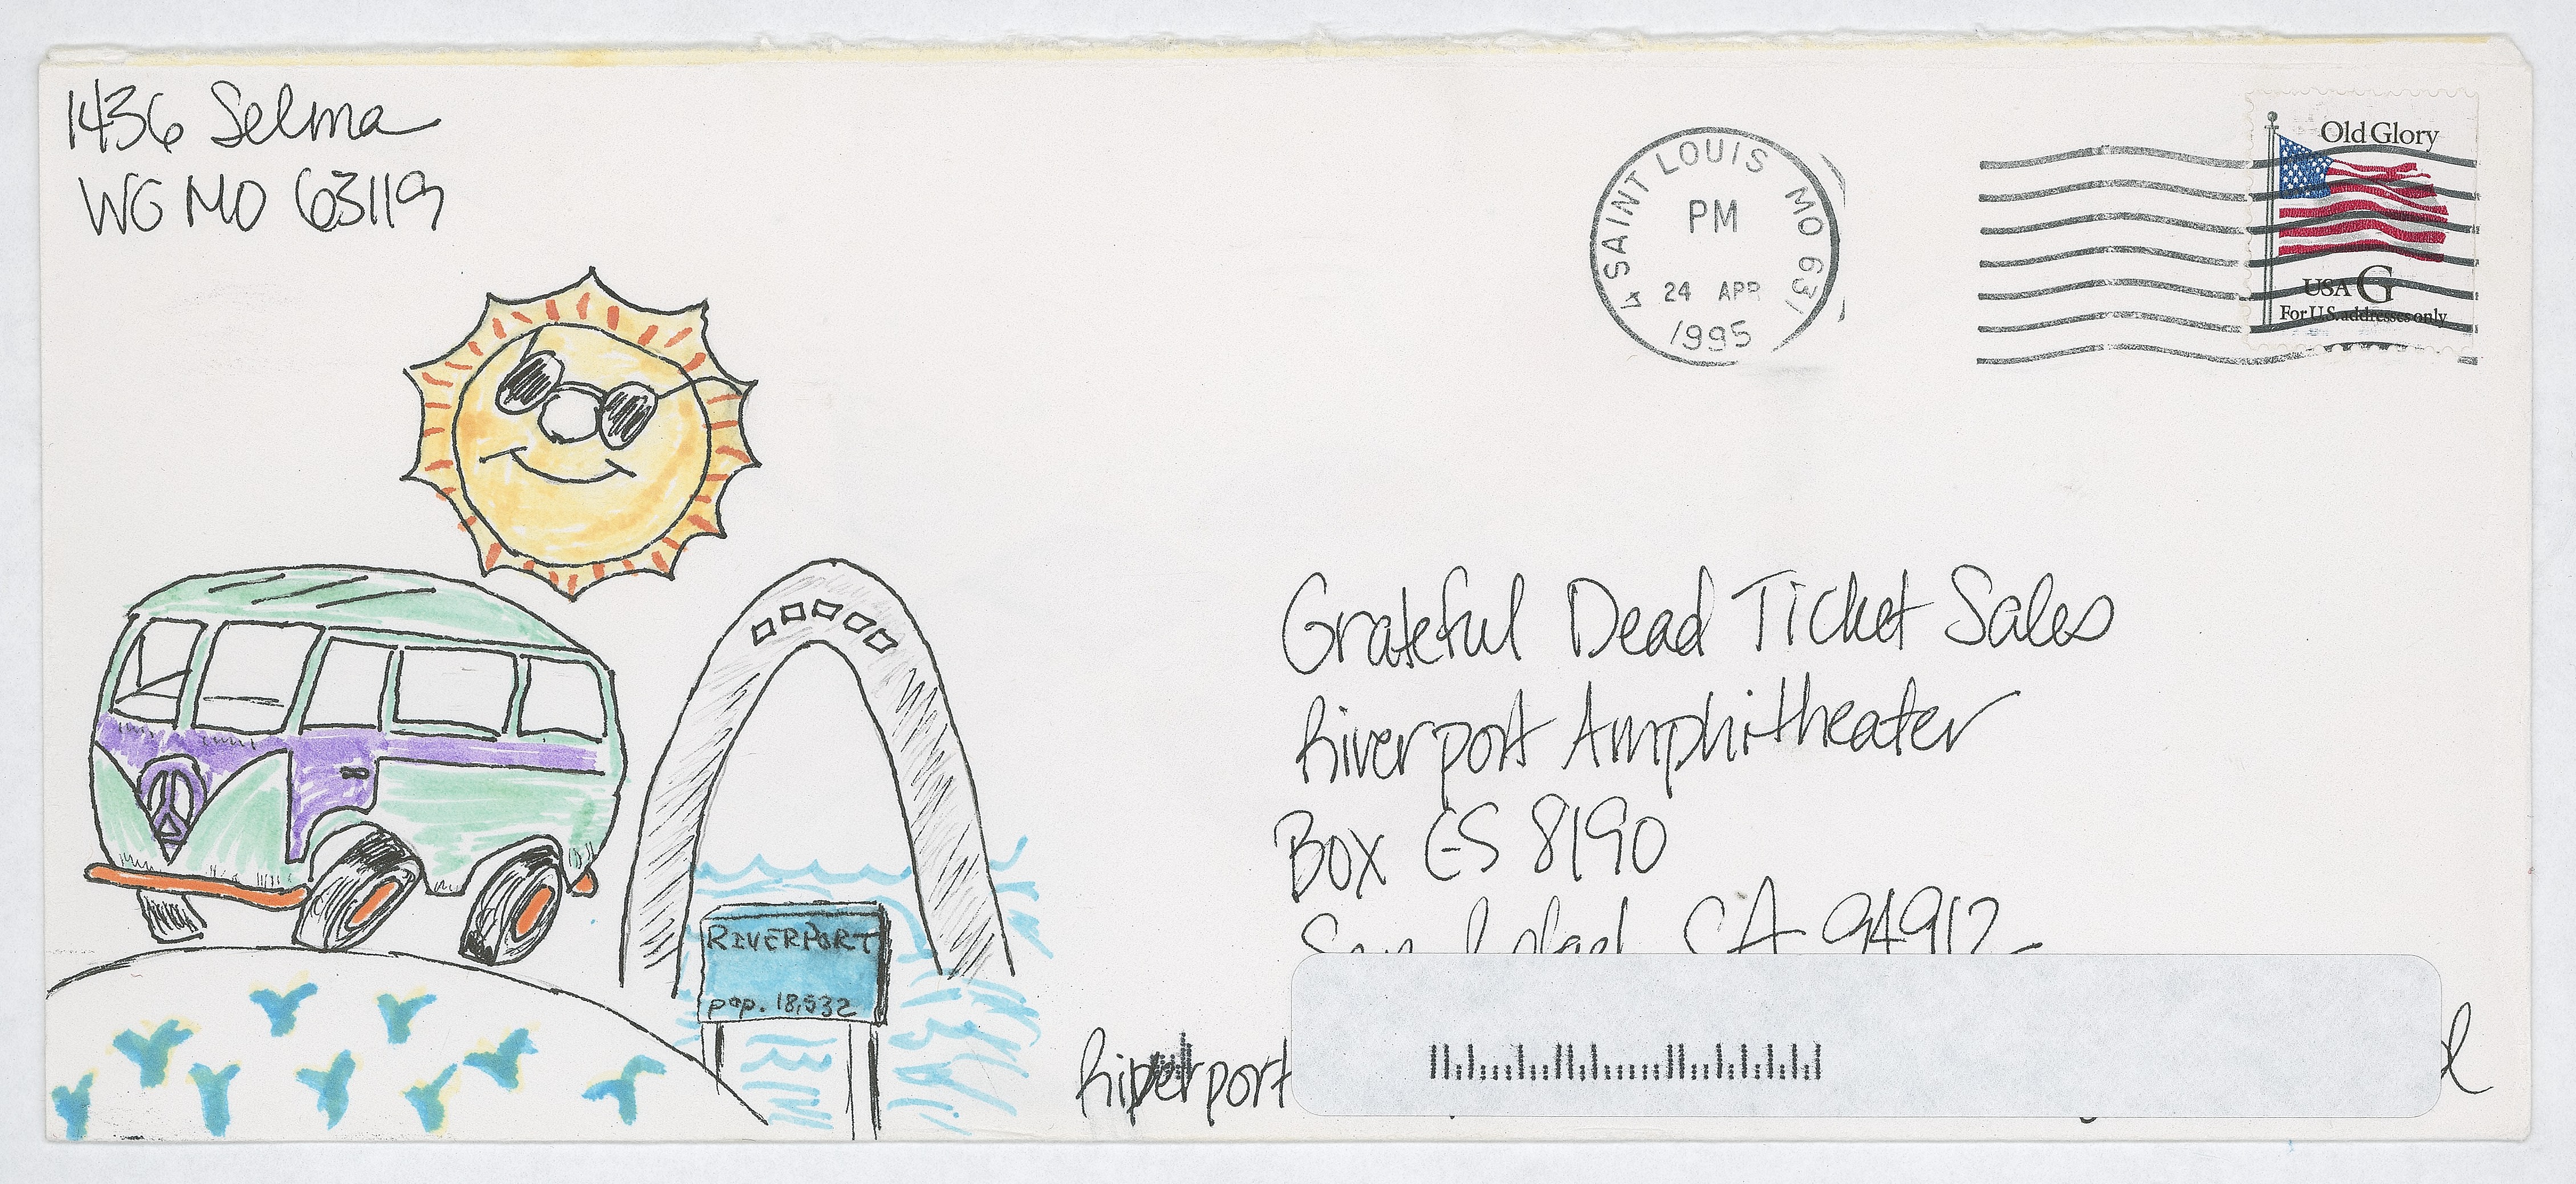 1436 Selma
WG MO 63119
SAINT LOUIS MO 631
PM
24 APR
1995
Old Glory
USA G
For U.S. addresses only
Grateful Dead Ticket Sales
Riverport Amphitheater
Box ES 8190
San Rafael CA 94912-
RIVERPORT
pop. 18,532
Riverport